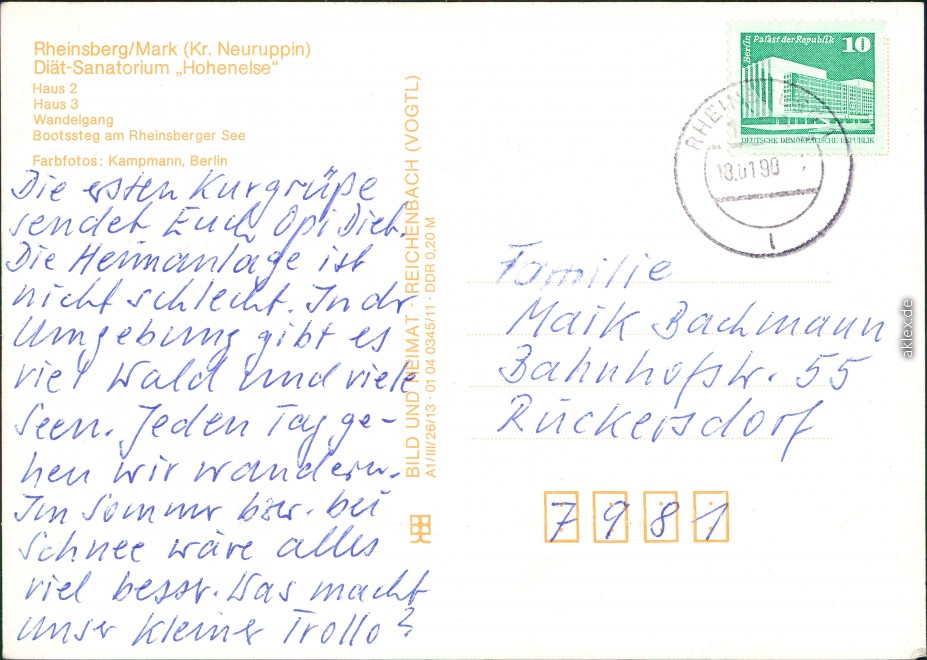 Rheinsberg/Mark (Kr. Neuruppin)
Diät-Sanatorium „Hohenelse"
Haus 2
Haus 3
Wandelgang
Bootssteg am Rheinsberger See
Farbfotos: Kampmann, Berlin
Die ersten Kurgrüße
sendet Euch Opi Diet.
Die Heimanlage ist
nicht schlecht. In dr
Umgebung gibt es
viel Wald und viele
Seen. Jeden Tag ge-
hen wir wandern.
Im Sommer bzw. bei
Schnee wäre alles
viel bessr. Was macht
unser kleiner Trollo?
BILD UND HEIMAT · REICHENBACH (VOGTL)
A1/III/26/13 · 01 04 0345/11 · DDR 0,20 M
Berlin Palast der Republik
10
DEUTSCHE DEMOKRATISCHE REPUBLIK
18.01.90
Familie
Maik Bachmann
Bahnhofstr. 55
Rückersdorf
7981
aklex.de